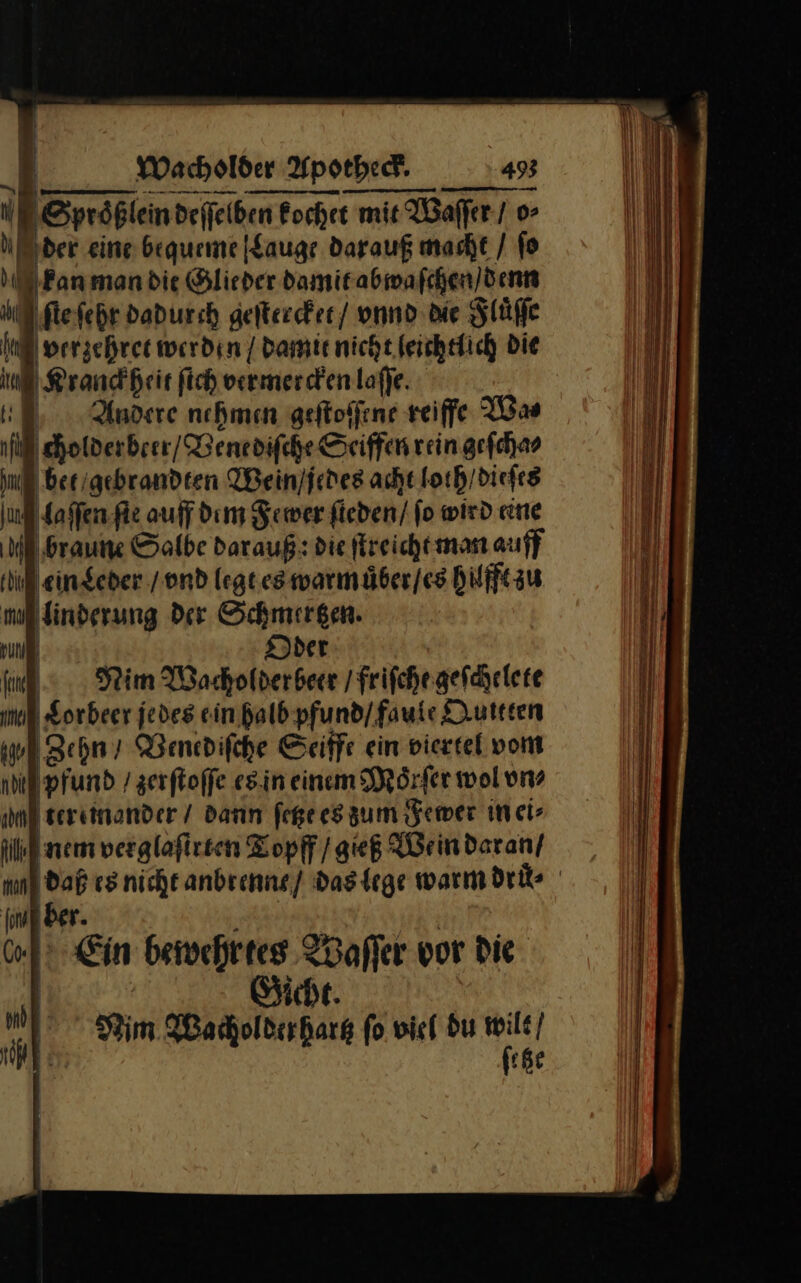 Wacholder Apotheck. 493
Sproͤßlein deſſelben kochet mit Waſſer / o⸗
der eine bequeme Lauge darauß macht / ſo
kan man die Glieder damit abwaſchen / denn
ſie ſehr dadurch geſtercket / vnnd die Fluͤſſe
verzehret werden / damit nicht leichtlich die
Kranckheit ſich vermercken laſſe.
Andere nehmen geſtoſſene reiffe Wa⸗
cholderbeer / Venediſche Seiffen rein geſcha⸗
bet / gebrandten Wein / jedes acht loth / dieſes
laſſen ſie auff dem Fewer ſieden / ſo wird eine
braune Salbe darauß : die ſtreicht man auff
ein Leder / vnd legt es warm uͤber / es hilfft zu
linderung der Schmertzen.
Oder
Nim Wacholderbeer / friſche geſchelete
Lorbeer jedes ein halb pfund / faule Quitten
Zehn / Venediſche Seiffe ein viertel vom
pfund / zerſtoſſe es in einem Moͤrſer wol vn⸗
tereinander / dann ſetze es zum Fewer in ei⸗
nem verglaſirten Topff / gieß Wein daran /
daß es nicht anbrenne / das lege warm druͤ⸗
ber.
Ein bewehrtes Waſſer vor die
Gicht.
Nim Wacholderhartz ſo viel du wilt /
ſetze